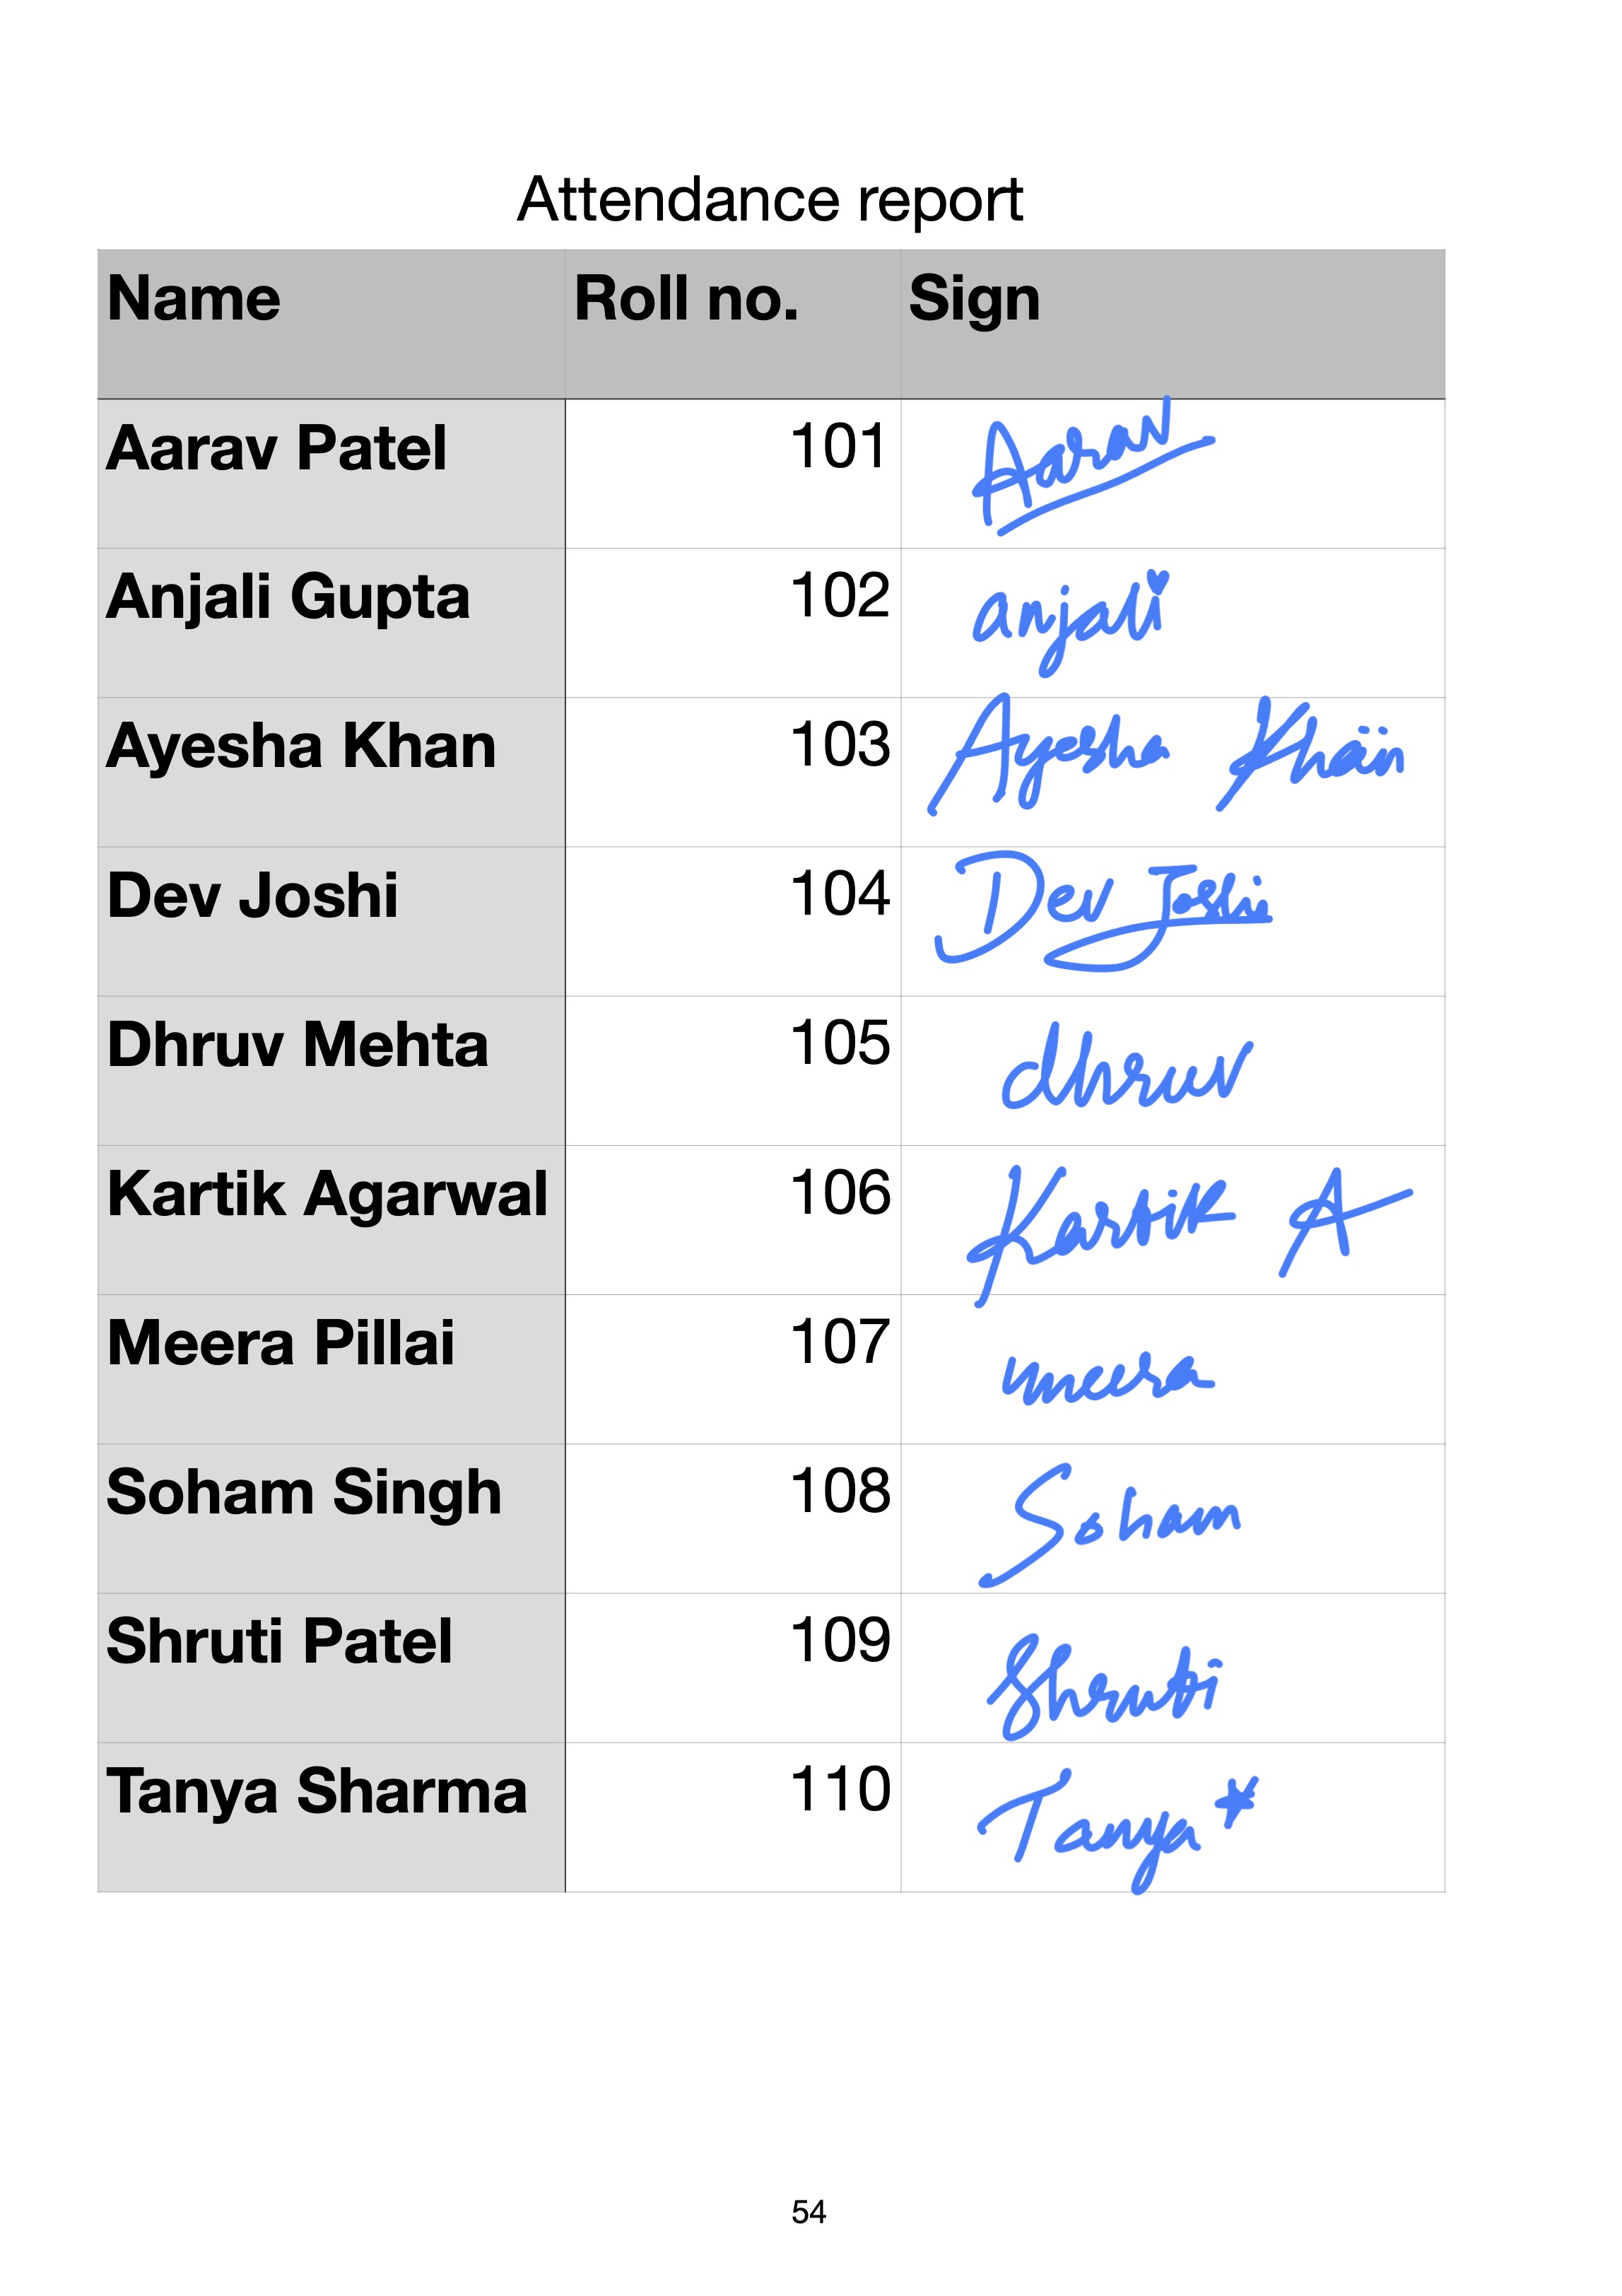 Attendance report
Name Roll no. Sign
Aarav Patel 101 Aarav
Anjali Gupta 102 anjali
Ayesha Khan 103 Ayesha Khan
Dev Joshi 104 Dev Joshi
Dhruv Mehta 105 dhruv
Kartik Agarwal 106 Kartik A
Meera Pillai 107 meera
Soham Singh 108 Soham
Shruti Patel 109 Shruti
Tanya Sharma 110 Tanya
54